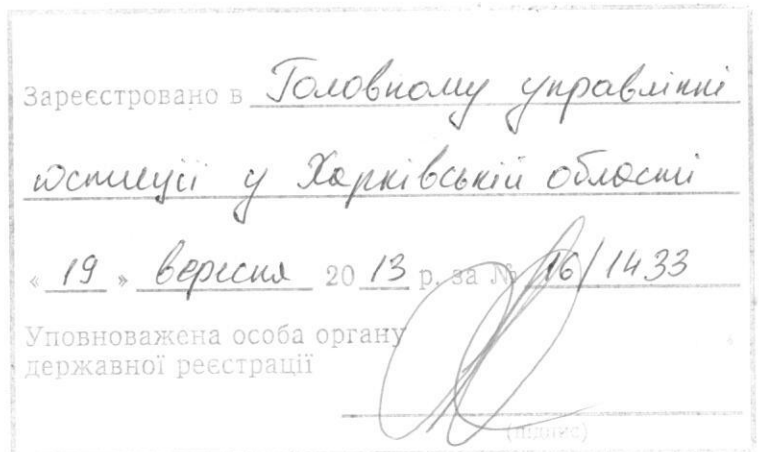 Зареєстровано в Головному управлінні
юстиції у Харківській області
« 19 » вересня 20 13 р. за № 16/1433
Уповноважена особа органу
державної реєстрації
(підпис)